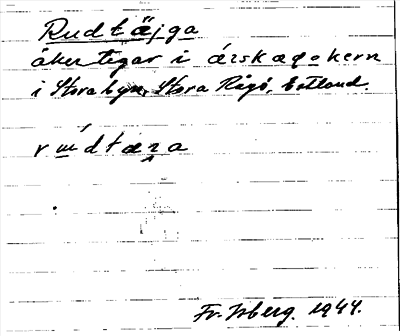 Rudtäjga
åkertegar i árskægokern
i Stora byn, Stora Rågö, Estland.
rɯ́dtæȝa
Fr. Isberg. 1944.